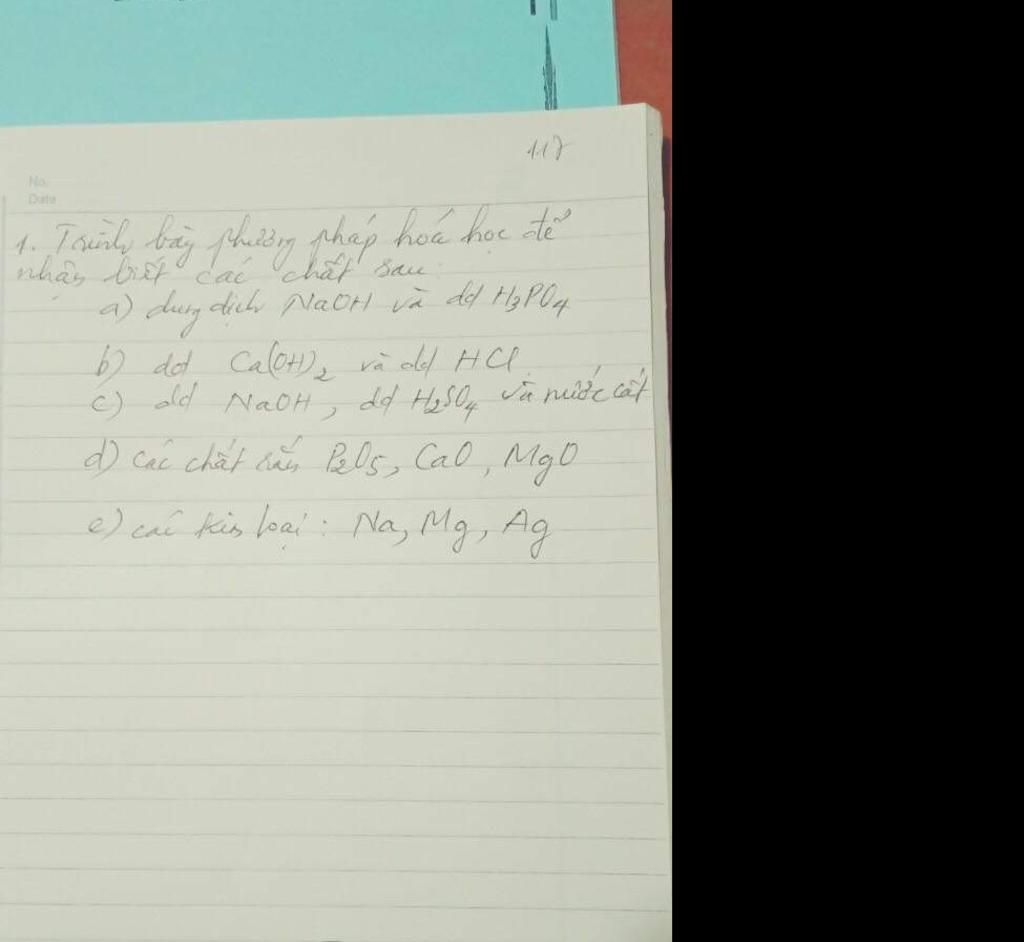 117
No.
Date
1. Trình bày phương pháp hoá học để
nhận biết các chất sau:
a) dung dịch NaOH và dd H₃PO₄
b) dd Ca(OH)₂ và dd HCl
c) dd NaOH, dd H₂SO₄ và nước cất
d) các chất rắn P₂O₅, CaO, MgO
e) các kim loại: Na, Mg, Ag